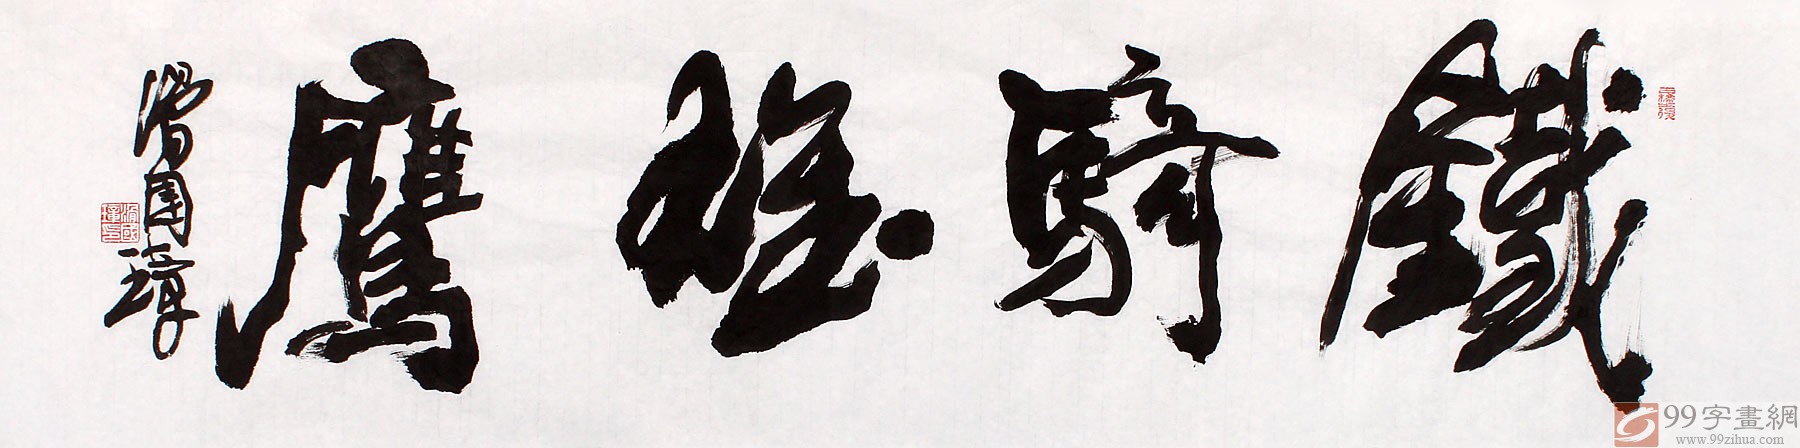 鐵騎雄鷹
滑國璋
99字畫網
www.99zihua.com